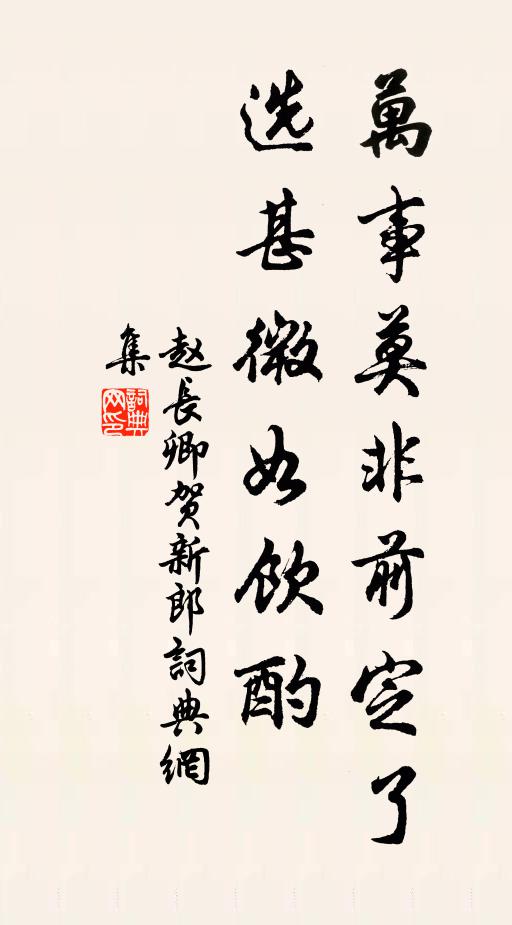 萬事莫非前定了
选甚微如飲酌
赵長卿贺新郎詞典網
集
詞典
网印